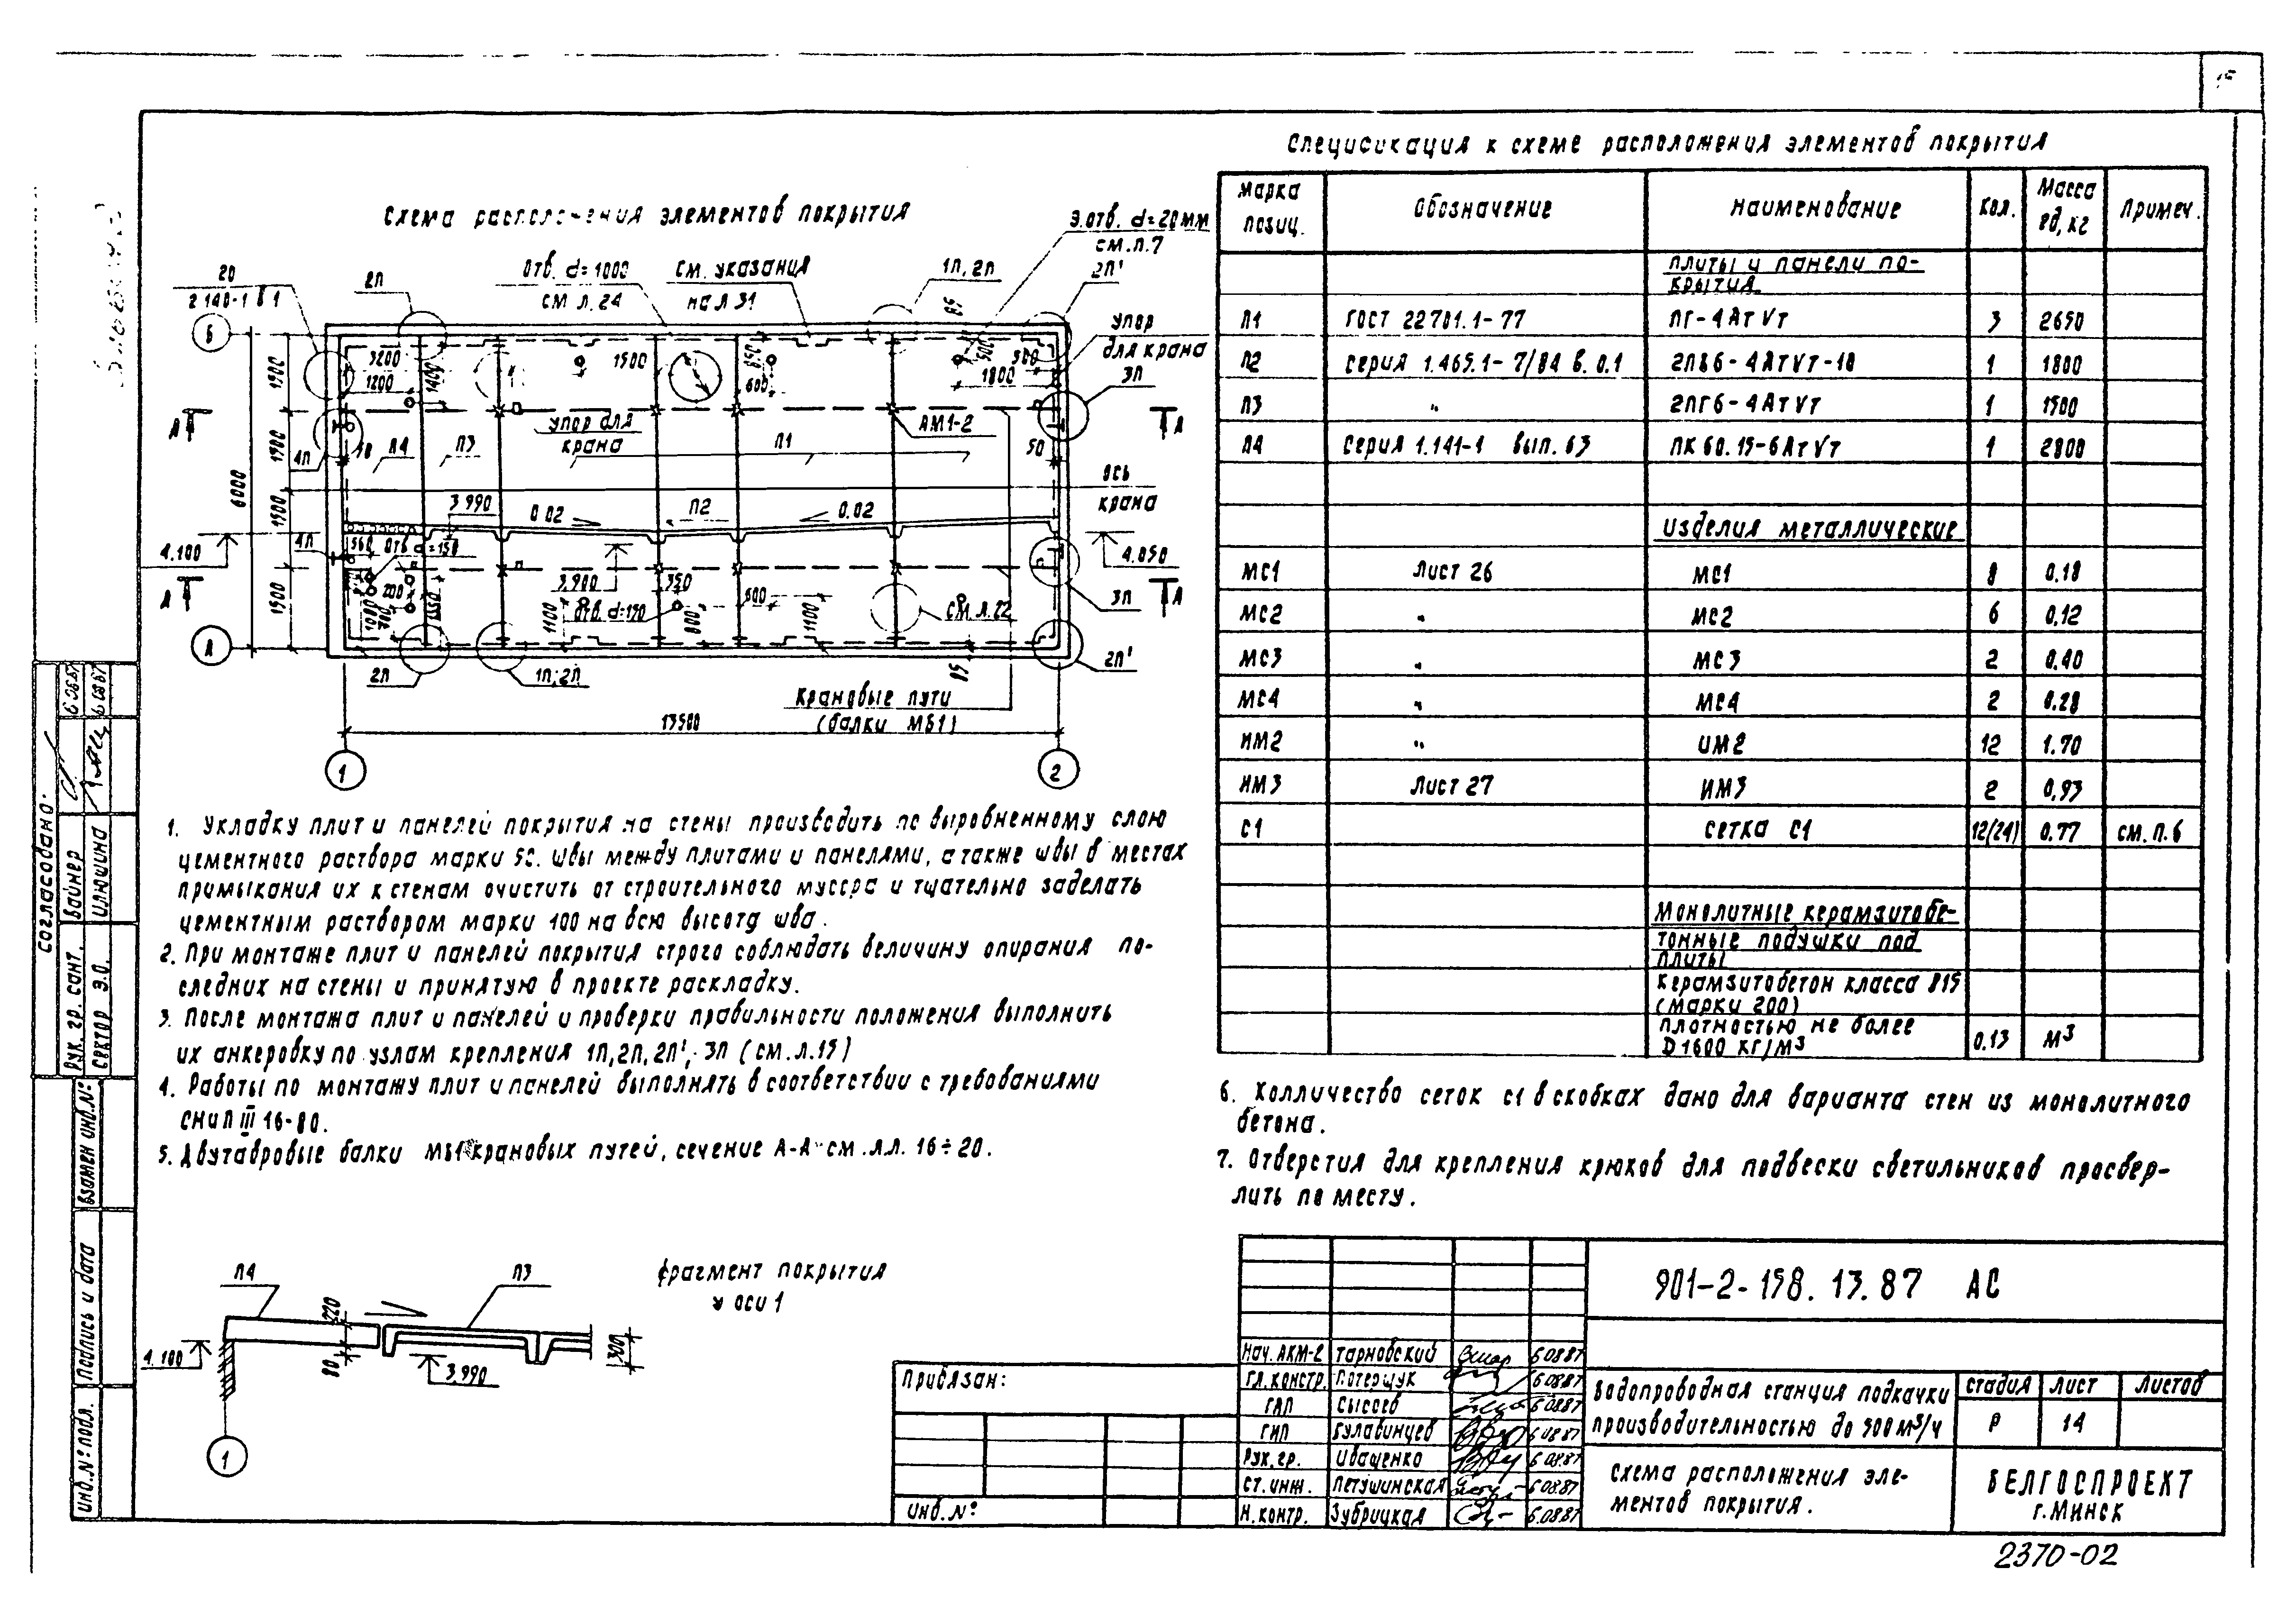 Схема расположения элементов покрытия
20
2.140-1 в 1
2п
отв. d=1000
см л. 24
см. указания
на л 31
1п, 2п
3.отв. d=20мм
см.п.7
2п'
85
Б
упор
для крана
3п
3200
1200
1400
1500
850
600
500
1800
1500
6000
А
4п
П4
П3
упор для
крана
П1
АМ1-2
50
А
ось
крана
3.990
0.02
П2
0.02
4.100
4п
560
отв d=150
4.050
3.900
350
200
1100
отв. d=150
800
600
1100
см.л.22
3п
А
А
А
2п
1п; 2п
85
2п'
Крановые пути
(балки МБ1)
13500
1
2
1. Укладку плит и панелей покрытия на стены производить по выровненному слою
цементного раствора марки 50. швы между плитами и панелями, а также швы в местах
примыкания их к стенам очистить от строительного мусора и тщательно заделать
цементным раствором марки 100 на всю высоту шва.
2. При монтаже плит и панелей покрытия строго соблюдать величину опирания по-
следних на стены и принятую в проекте раскладку.
3. После монтажа плит и панелей и проверки правильности положения выполнить
их анкеровку по узлам крепления 1п, 2п, 2п', 3п (см.л.15)
4. Работы по монтажу плит и панелей выполнять в соответствии с требованиями
СНиП III 16-80.
5. Двутавровые балки МБ1 крановых путей, сечение А-А см.л.л. 16÷20.
Фрагмент покрытия
у оси 1
П4
П3
220
4.100
80
3.990
300
1
Спецификация к схеме расположения элементов покрытия
Марка позиц. Обозначение Наименование Кол. Масса ед, кг Примеч.
Плиты и панели по-
крытия
П1 ГОСТ 22701.1-77 ПГ-4АтVт 3 2650
П2 Серия 1.465.1-7/84 в. 0.1 2ПВ6-4АтVт-10 1 1800
П3 " 2ПГ6-4АтVт 1 1500
П4 Серия 1.141-1 вып. 63 ПК 60.15-6АтVт 1 2800
Изделия металлические
МС1 Лист 26 МС1 8 0.18
МС2 " МС2 6 0.12
МС3 " МС3 2 0.40
МС4 " МС4 2 0.28
ИМ2 " ИМ2 12 1.70
ИМ3 Лист 27 ИМ3 2 0,93
С1 сетка С1 12(24) 0.77 см.п.6
Монолитные керамзитобе-
тонные подушки под
плиты
Керамзитобетон класса В15
(марки 200)
плотностью не более
D1600 кг/м³ 0.13 м³
6. Колличество сеток С1 в скобках дано для варианта стен из монолитного
бетона.
7. Отверстия для крепления крюков для подвески светильников просвер-
лить по месту.
901-2-158.13.87 АС
Нач. АКМ-2 Тарновский 6.08.87
Гл. констр. Потерщук 6.08.87
ГАП Сысоев 6.08.87
ГИП Гулавинцев 6.08.87
Рук. гр. Иващенко 6.08.87
Ст. инж. Петушинская 6.08.87
Н. контр. Зубрицкая 6.08.87
Водопроводная станция подкачки
производительностью до 500 м³/ч
Стадия Лист Листов
Р 14
Схема расположения эле-
ментов покрытия.
БЕЛГОСПРОЕКТ
г. Минск
Привязан:
Инв. №:
Согласовано:
Рук. гр. сант. Вайнер
Сектор Э.О. Илюшина
Взамен инв.№
Подпись и дата
Инв.№ подл.
2370-02